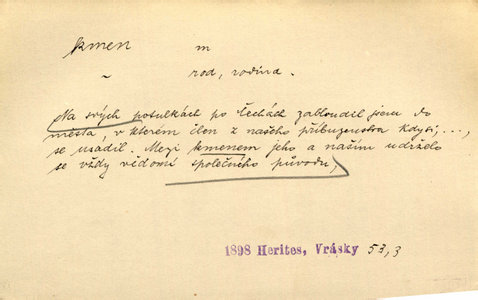 kmen m
~ rod, rodina.
Na svých potulkách po Čechách zabloudil jsem do
města v kterém člen z našeho příbuzenstva kdysi, ...,
se usadil. Mezi kmenem jeho a naším udrželo
se vždy vědomí společného původu,
1898 Herites, Vrásky 53,3